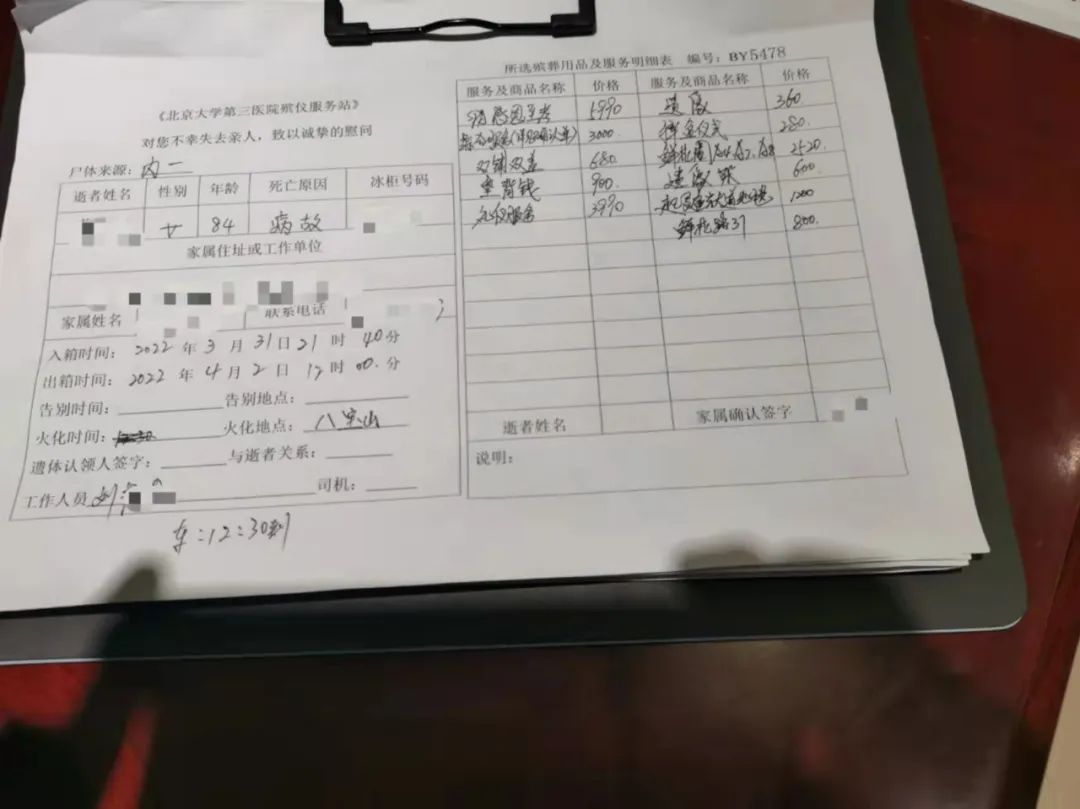 《北京大学第三医院殡仪服务站》
对您不幸失去亲人，致以诚挚的慰问
尸体来源：内一
逝者姓名 性别 年龄 死亡原因 冰柜号码
女 84 病故
家属住址或工作单位
家属姓名 联系电话
入箱时间：2022年3月31日21时40分
出箱时间：2022年4月2日12时00分
告别时间： 告别地点：
火化时间： 火化地点：八宝山
遗体认领人签字： 与逝者关系：
工作人员 司机：
车：12：30到
所选殡葬用品及服务明细表 编号：BY5478
服务及商品名称 价格 服务及商品名称 价格
5990 遗像 360
3000 280
双铺双盖 680 2520
垫背钱 900 600
礼仪服务 3990
800
逝者姓名 家属确认签字
说明：